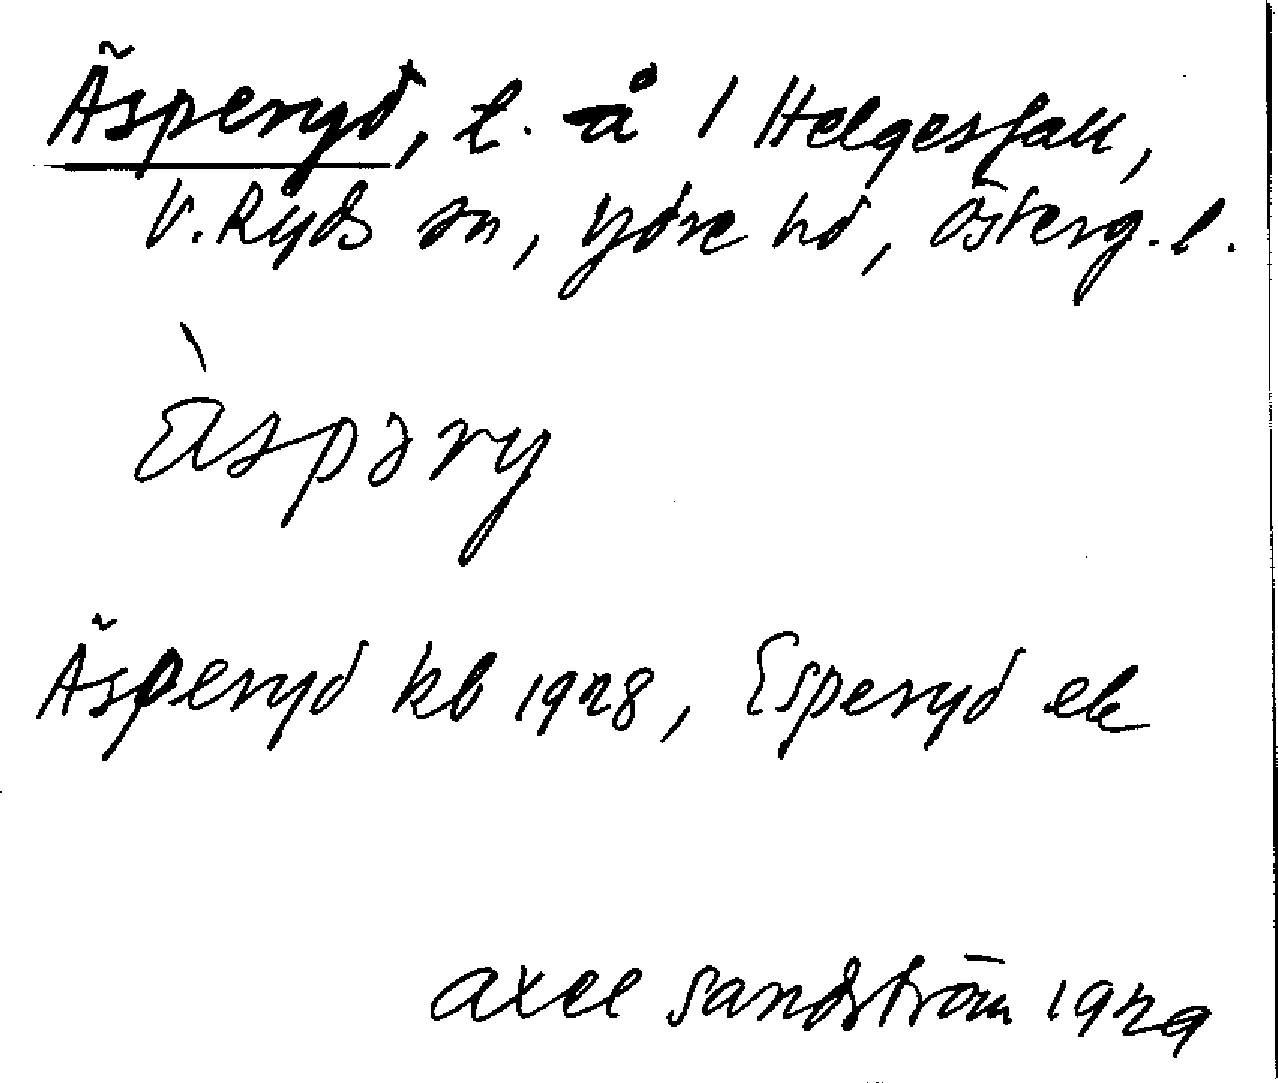 Äsperyd, t. å 1 Helgesfall,
V. Ryds sn, Ydre hd, Österg. l.
ä̀spəry
Äsperyd kb 1928, Esperyd ek
Axel Sandström 1929